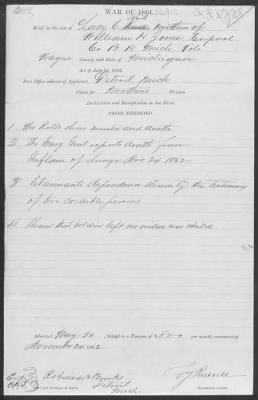 WAR OF 1861.
Brief in the case of Lucy C. mother of
William H. Jones Corporal
Co B. 8. Mich. Vols
Wayne County, and State of Michigan
Act of July 14, 1862.
Post Office address of Applicant, Detroit Mich
Claim for Mother's Pension.
Declaration and Identification in due Form.
PROOF EXHIBITED.
1 The Rolls show muster and death
2 The Surg Genl reports death from
Inflam of Lungs Nov 24. 1862
3 Claimants dependence shown by the testimony
of two credible persons
4 Shown that soldier left no widow nor child.
Admitted May 20, to a Pension of $8.00 per month, commencing
November 24, 1862
Robinson & Brooks
Detroit
Mich
Name and Residence of Agent.
Examining Clerk.